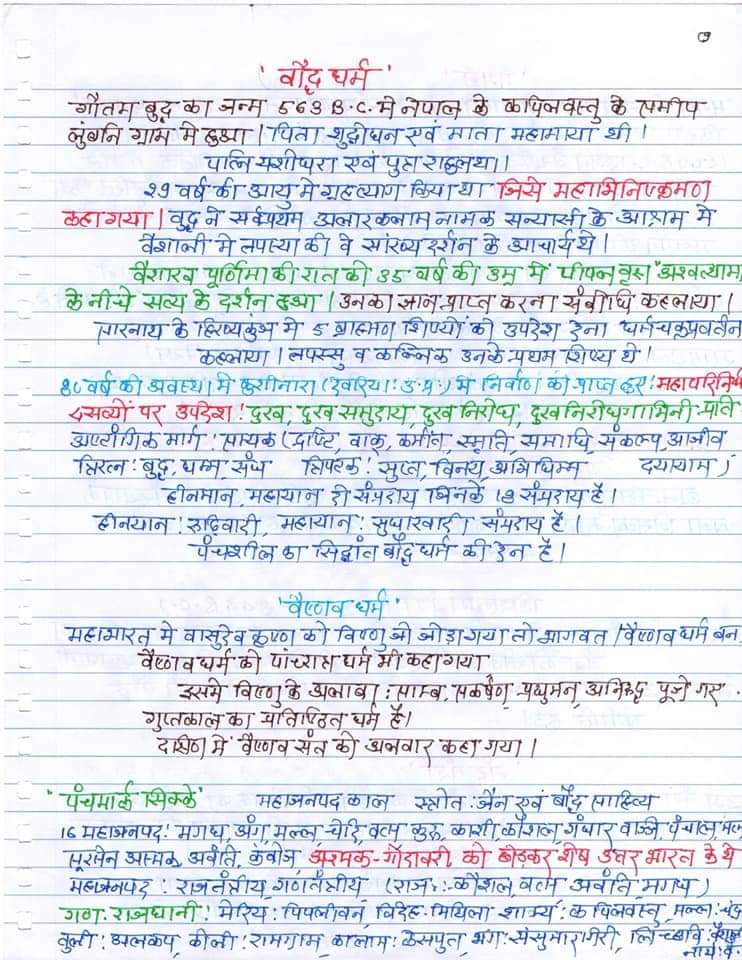 'बौद्ध धर्म'
गौतम बुद्ध का जन्म 563 B.C. मे नेपाल के कपिलवस्तु के समीप
लुंबनि ग्राम मे हुआ। पिता शुद्धोधन एवं माता महामाया थी।
पत्नि यशोधरा एवं पुत्र राहुल था।
29 वर्ष की आयु मे गृहत्याग किया था जिसे महाभिनिष्क्रमण
कहा गया। बुद्ध ने सर्वप्रथम अलारकलाम नामक सन्यासी के आश्रम मे
वैशाली मे तपस्या की वे सांख्य दर्शन के आचार्य थे।
वैशाख पूर्णिमा की रात को 35 वर्ष की उम्र मे पीपल वृक्ष "अश्वत्थाम
के नीचे सत्य के दर्शन हुआ। उनका ज्ञान प्राप्त करना संबोधि कहलाया।
सारनाथ के मे 5 ब्राह्मण शिष्यों को उपदेश देना धर्मचक्रप्रवर्तन
कहलाया। तपस्सु व उनके प्रथम शिष्य थे
80 वर्ष की अवस्था मे कुशीनारा (देवरिया: उ.प्र.) मे निर्वाण को प्राप्त हुए: महापरिनिर्व
4 सत्यों पर उपदेश: दुख, दुख समुदाय, दुख निरोध, दुख निरोधगामिनी प्रति
अष्टांगिक मार्ग: सम्यक (दृष्टि, वाक्, कर्मांत, स्मृति, समाधि, संकल्प, आजीव
त्रिरत्न: बुद्ध, धम्म, संघ त्रिपिटक: सुत्त, विनय, अभिधम्म व्यायाम)
हीनयान, महायान दो संप्रदाय जिनके 18 संप्रदाय है।
हीनयान: रूढ़िवादी, महायान: सुधारवादी संप्रदाय है।
पंचशील का सिद्धांत बौद्ध धर्म की देन है।
'वैष्णव धर्म'
महाभारत मे वासुदेव कृष्ण को विष्णु से जोड़ा गया तो भागवत / वैष्णव धर्म बन
वैष्णव धर्म को पांचरात्र धर्म भी कहा गया
इसमे विष्णु के अलावा: साम्ब, संकर्षण, प्रद्युमन, अनिरुद्ध पूजे गए.
गुप्तकाल का प्रतिष्ठित धर्म है।
दक्षिण में वैष्णव संत को अलवार कहा गया।
"पंचमार्क सिक्के" महाजनपद काल स्त्रोत: जैन एवं बौद्ध साहित्य
16 महाजनपद: मगध, अंग, मल्ल, चेदि, वत्स, कुरु, काशी, कौशल, गंधार, वज्जि, पंचाल,
सूरसेन अस्मक, अवंति, कंबोज, अश्मक-गोदावरी को छोड़कर शेष उत्तर भारत के थे
महाजनपद: राजतंत्रीय, गणतंत्रीय (राज: कौशल, वत्स अवंति, मगध)
गण: राजधानी: मोरिय: पिपलीवन, विदेह: मिथिला शाक्य: कपिलवस्तु, मल्ल:
बुली: अलकप, कोली: रामगाम, कालाम: केसपुत, भग: सेसुमारगिरी, लिच्छवि: